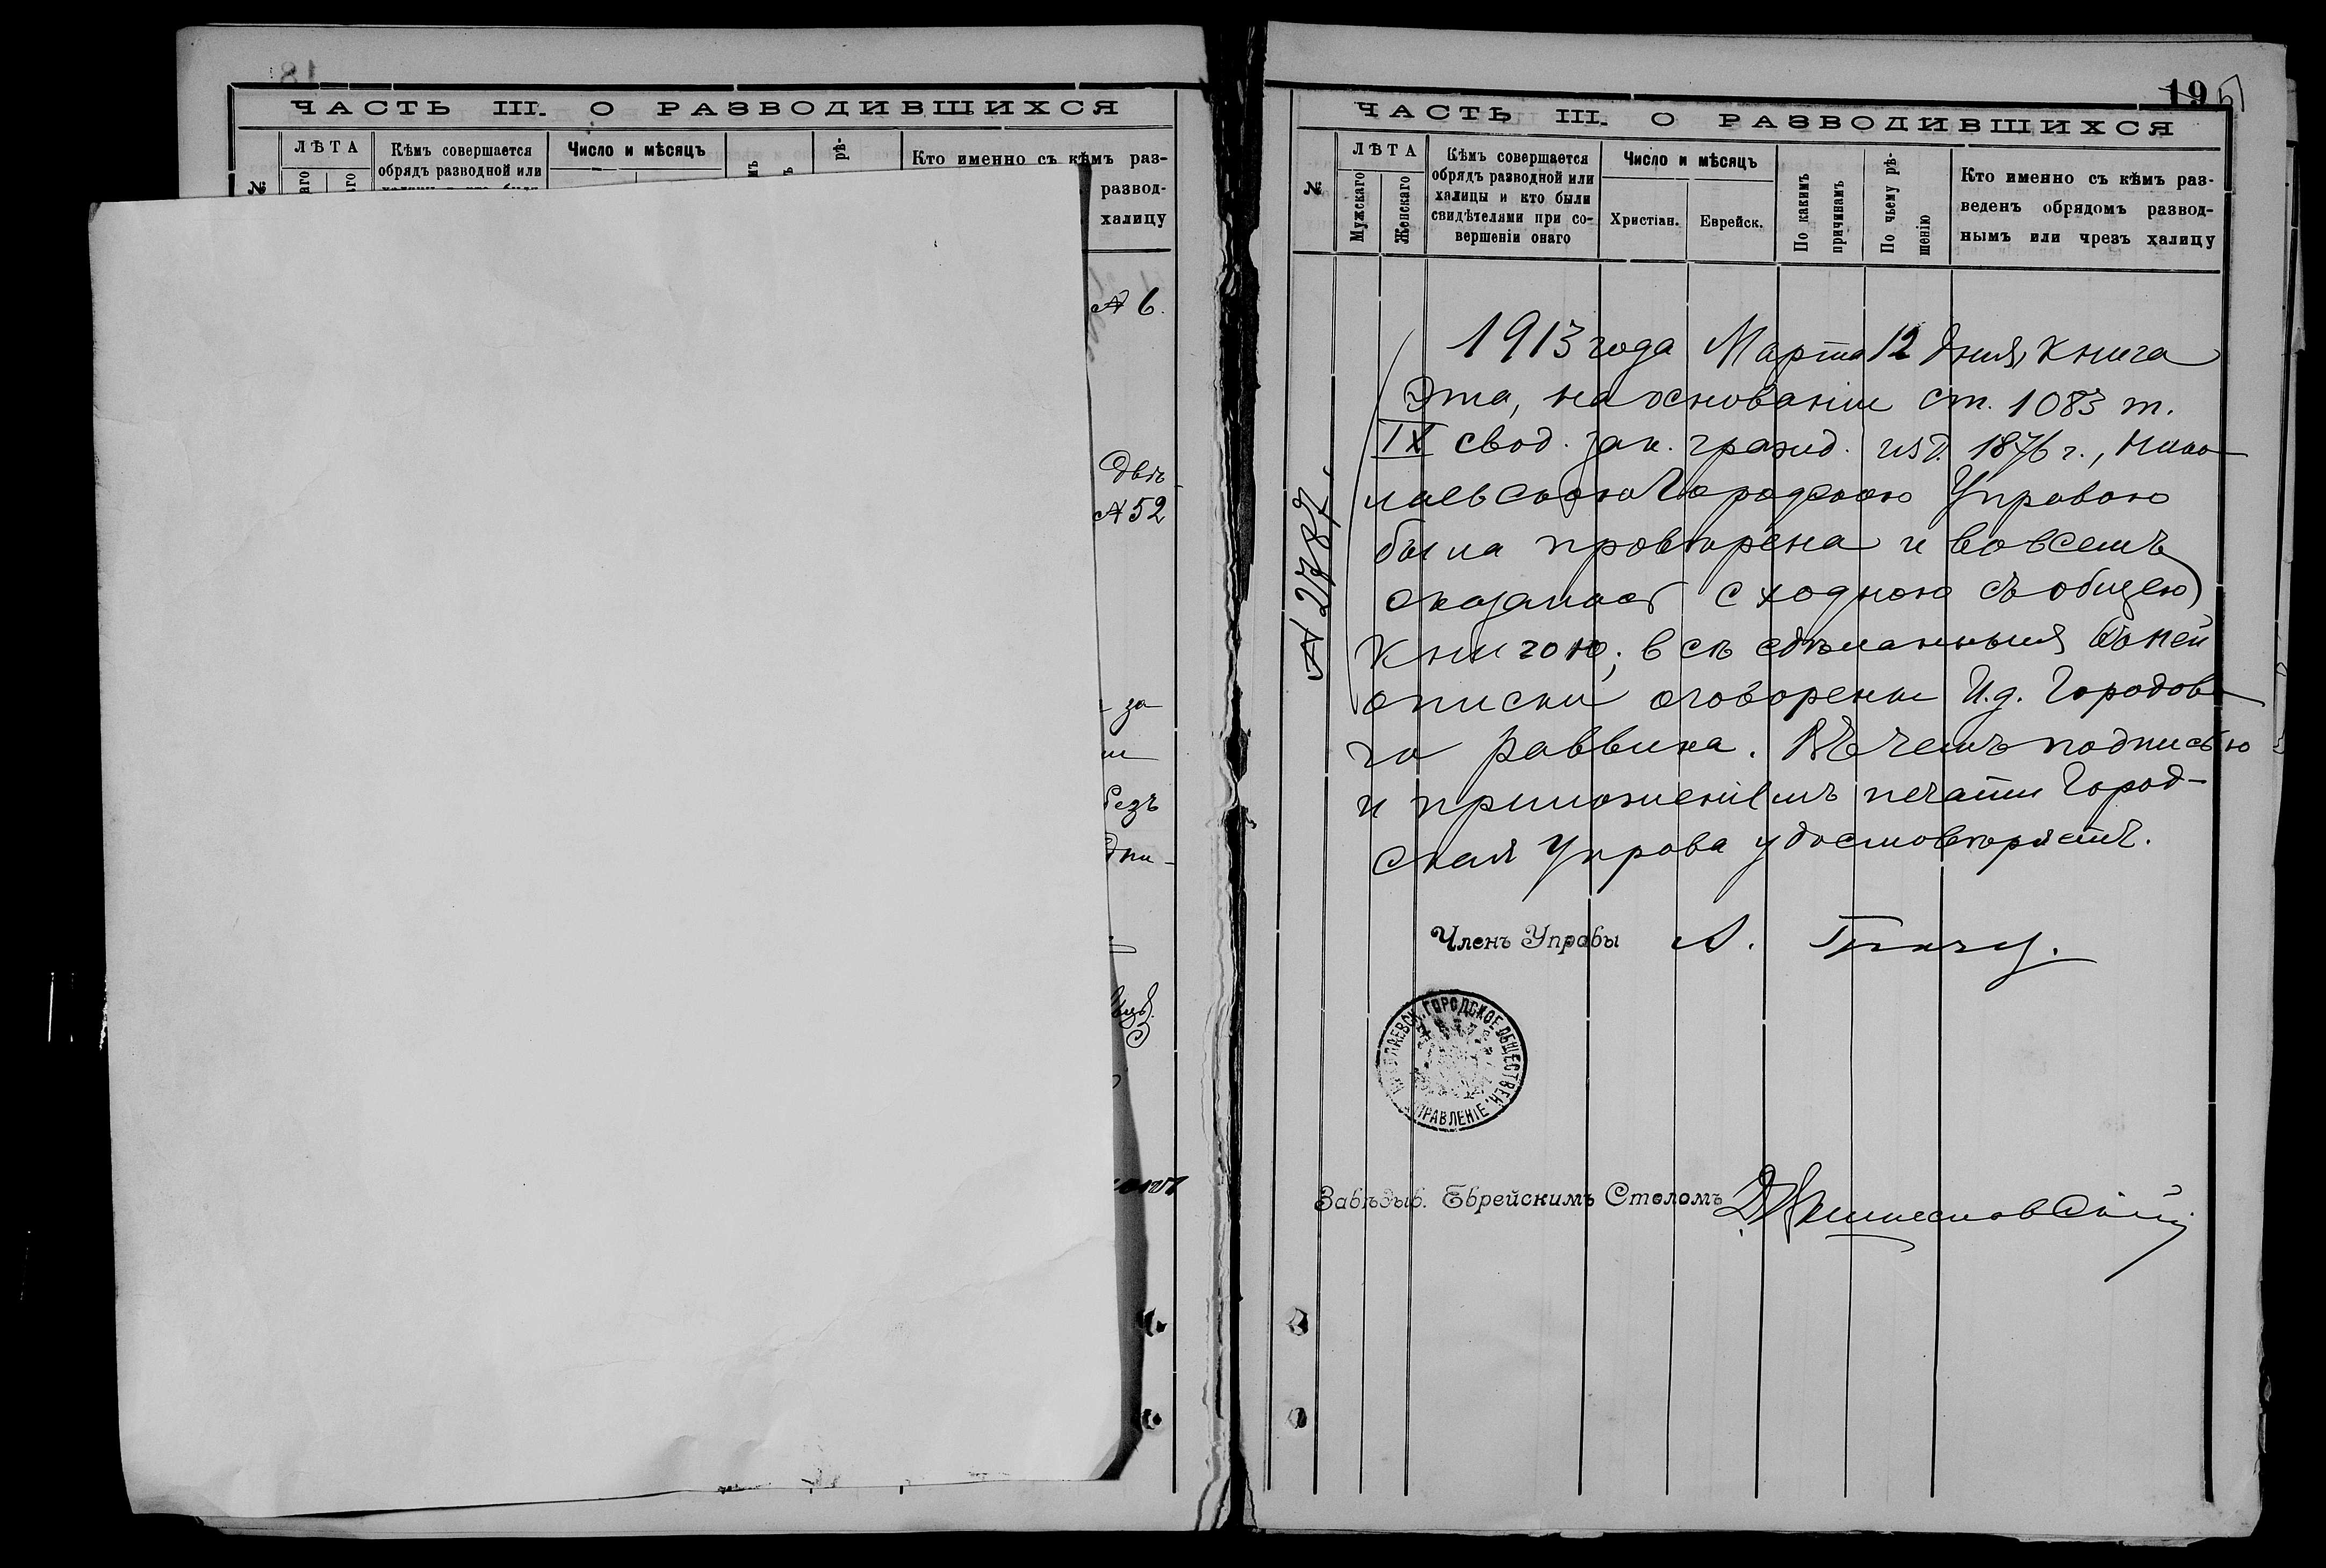 ЧАСТЬ III. О РАЗВОДИВШИХСЯ
№
ЛѢТА
Кѣмъ совершается
обрядъ разводной или
Число и мѣсяцъ
рѣ-
Кто именно съ кѣмъ раз-
развод-
халицу
№ 6.
№ 52
за
безъ
19
ЧАСТЬ III. О РАЗВОДИВШИХСЯ
№
ЛѢТА
Мужскаго
Женскаго
Кѣмъ совершается
обрядъ разводной или
халицы и кто были
свидѣтелями при со-
вершеніи онаго
Число и мѣсяцъ
Христіан.
Еврейск.
По какимъ
причинамъ
По чьему рѣ-
шенію
Кто именно съ кѣмъ раз-
веденъ обрядомъ развод-
нымъ или чрезъ халицу
№ 2787.
1913 года Марта 12 дня, книга
эта, на основаніи ст. 1083 т.
IX свод. зак. гражд. изд. 1876 г., Нико-
лаевскою Городскою Управою
была провѣрена и во всемъ
оказалась сходною съ общею
книгою; всѣ сдѣланныя въ ней
описки оговорены И.д. Городово-
го раввина. Въ чемъ подписью
и приложеніемъ печати Город-
ская Управа удостовѣряетъ.
Членъ Управы
НИКОЛАЕВСК. ГОРОДСКОЕ ОБЩЕСТВЕН. УПРАВЛЕНІЕ.
Завѣдыв. Еврейскимъ Столомъ